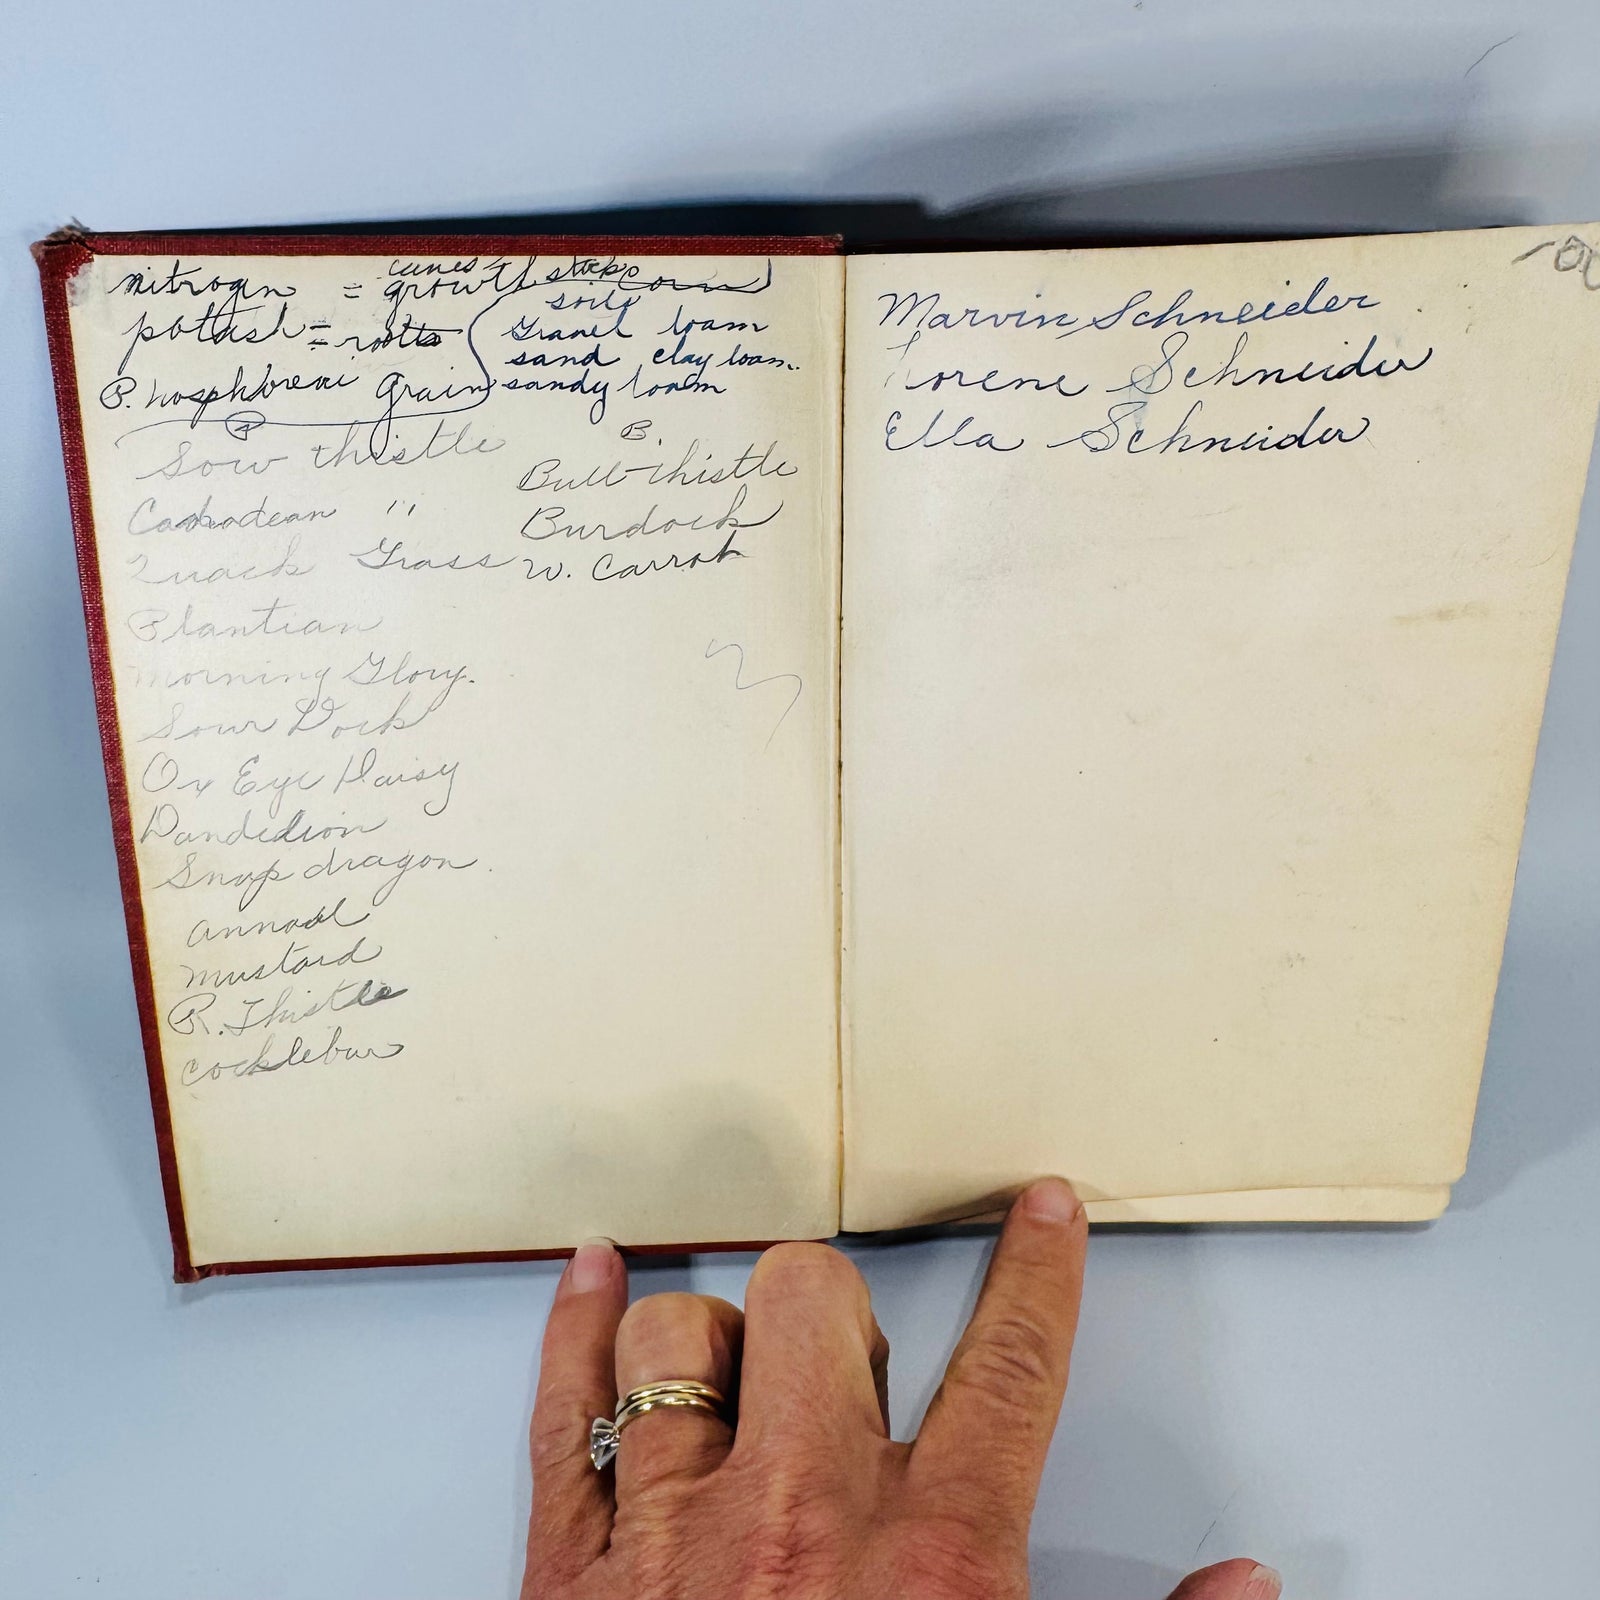 nitrogin = growth stock corn
potash = roots
P. hosphoreni Grain
soils
Gravel loam
sand clay loam.
sandy loam
P
Sow thistle
Canadean "
Quack Grass
Plantian
Morning Glory.
Sour Dock
Ox Eye Daisy
Dandelion
Snap dragon.
annual
mustard
R. Thistle
cocklebur
B.
Bull thistle
Burdock
W. Carrot
Marvin Schneider
Lorene Schneider
Ella Schneider